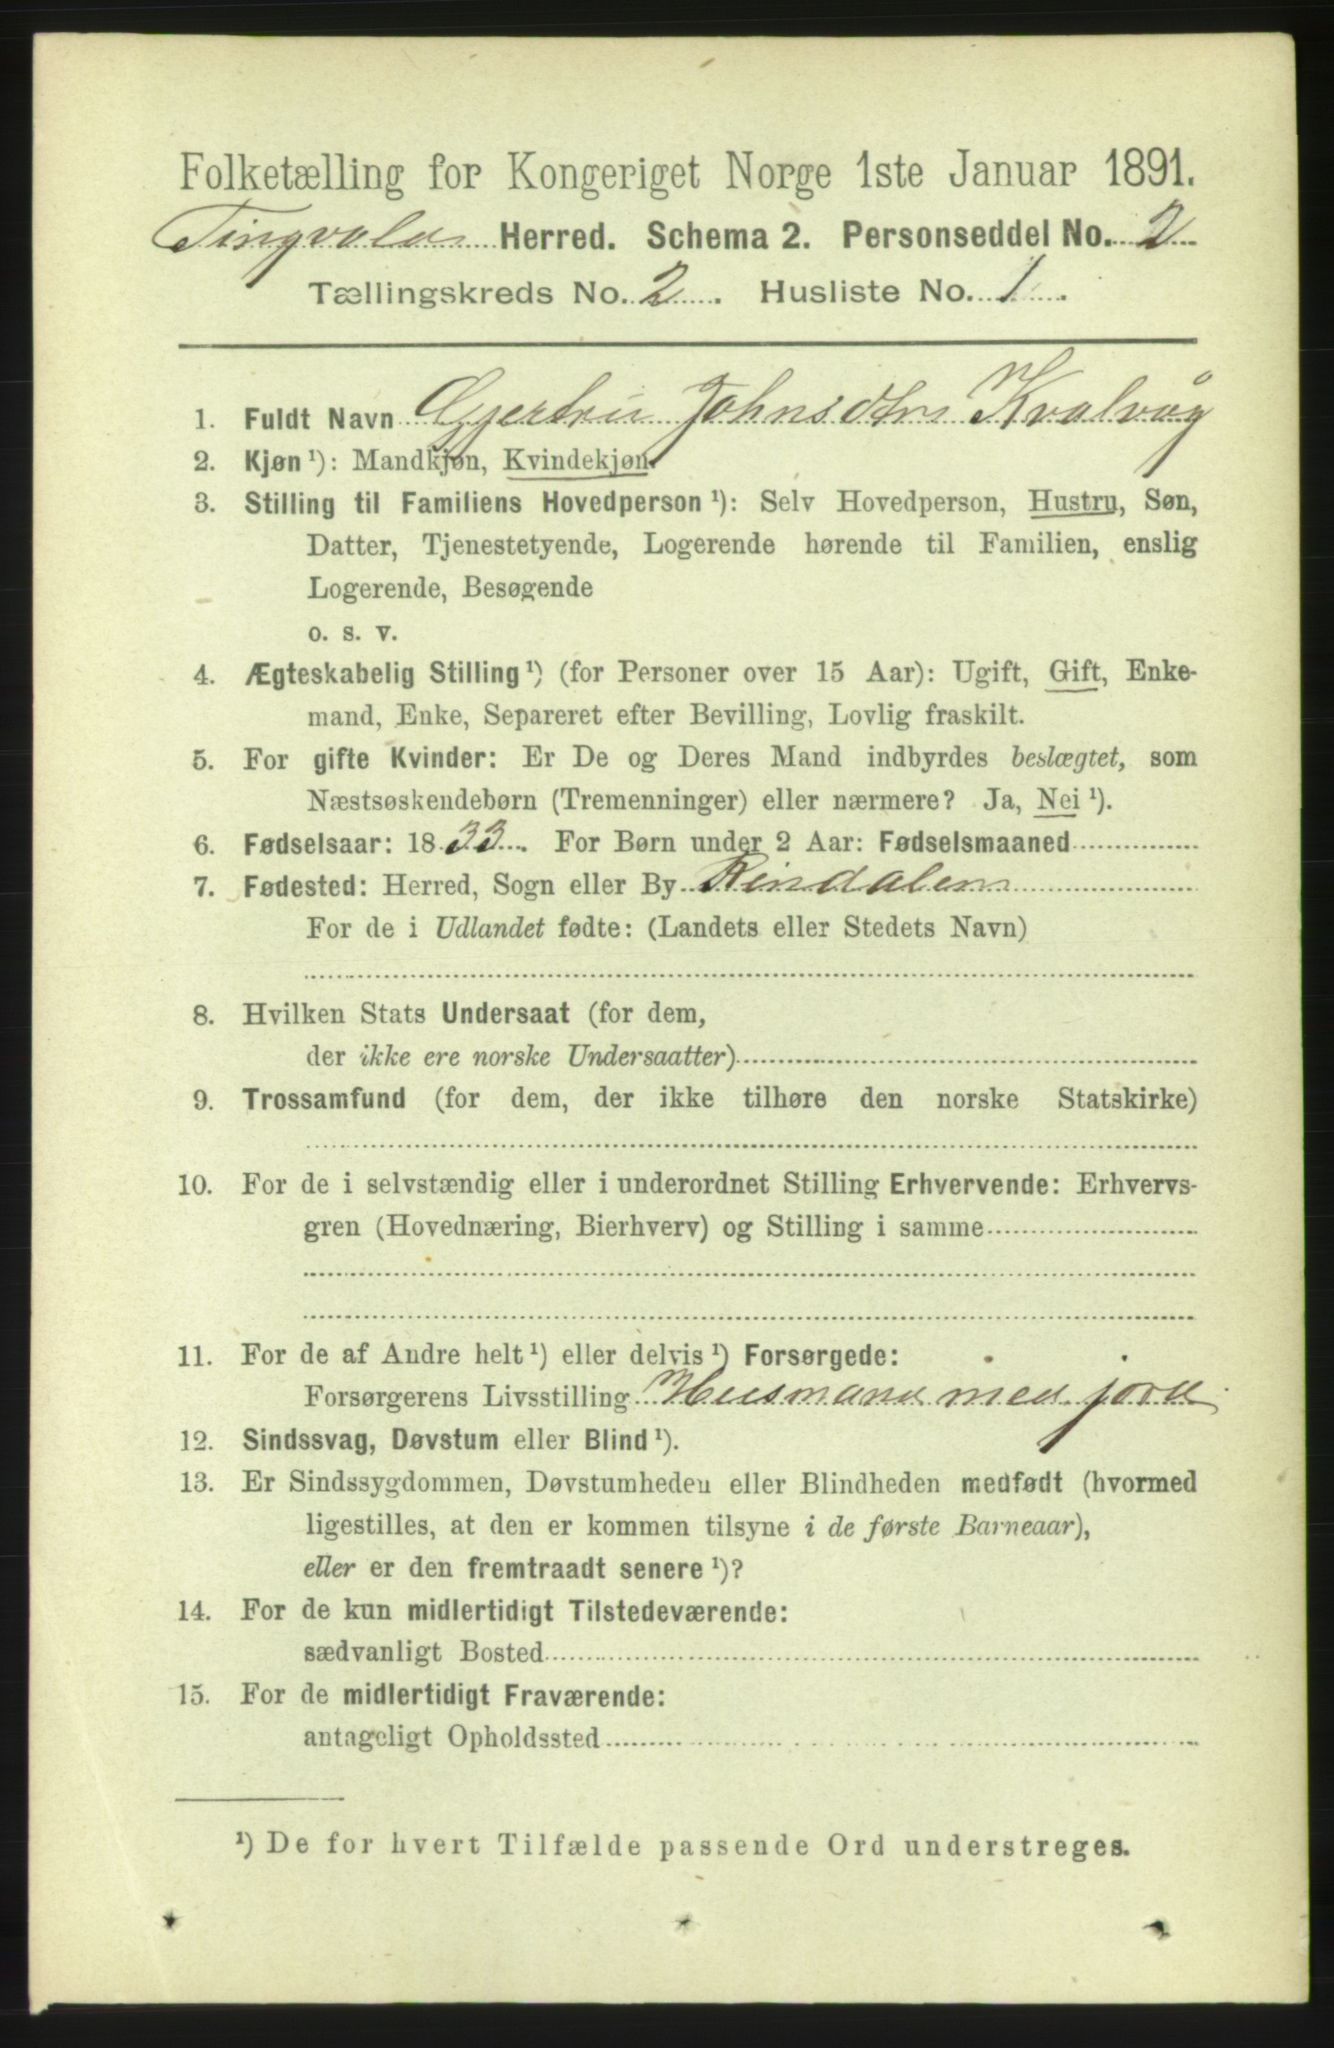 Folketælling for Kongeriget Norge 1ste Januar 1891.
Tingvold Herred. Schema 2. Personseddel No. 2
Tællingskreds No. 2. Husliste No. 1.
1. Fuldt Navn Gjertru Johnsdtr Kvalvåg
2. Kjøn ¹): Mandkjøn, Kvindekjøn.
3. Stilling til Familiens Hovedperson ¹): Selv Hovedperson, Hustru, Søn,
Datter, Tjenestetyende, Logerende hørende til Familien, enslig
Logerende, Besøgende
o. s. v.
4. Ægteskabelig Stilling ¹) (for Personer over 15 Aar): Ugift, Gift, Enke-
mand, Enke, Separeret efter Bevilling, Lovlig fraskilt.
5. For gifte Kvinder: Er De og Deres Mand indbyrdes beslægtet, som
Næstsøskendebørn (Tremenninger) eller nærmere? Ja, Nei ¹).
6. Fødselsaar: 1833. For Børn under 2 Aar: Fødselsmaaned
7. Fødested: Herred, Sogn eller By Rindalen
For de i Udlandet fødte: (Landets eller Stedets Navn)
8. Hvilken Stats Undersaat (for dem,
der ikke ere norske Undersaatter)
9. Trossamfund (for dem, der ikke tilhøre den norske Statskirke)
10. For de i selvstændig eller i underordnet Stilling Erhvervende: Erhvervs-
gren (Hovednæring, Bierhverv) og Stilling i samme
11. For de af Andre helt ¹) eller delvis ¹) Forsørgede:
Forsørgerens Livsstilling Husmand med jord
12. Sindssvag, Døvstum eller Blind ¹).
13. Er Sindssygdommen, Døvstumheden eller Blindheden medfødt (hvormed
ligestilles, at den er kommen tilsyne i de første Barneaar),
eller er den fremtraadt senere ¹)?
14. For de kun midlertidigt Tilstedeværende:
sædvanligt Bosted
15. For de midlertidigt Fraværende:
antageligt Opholdssted
¹) De for hvert Tilfælde passende Ord understreges.